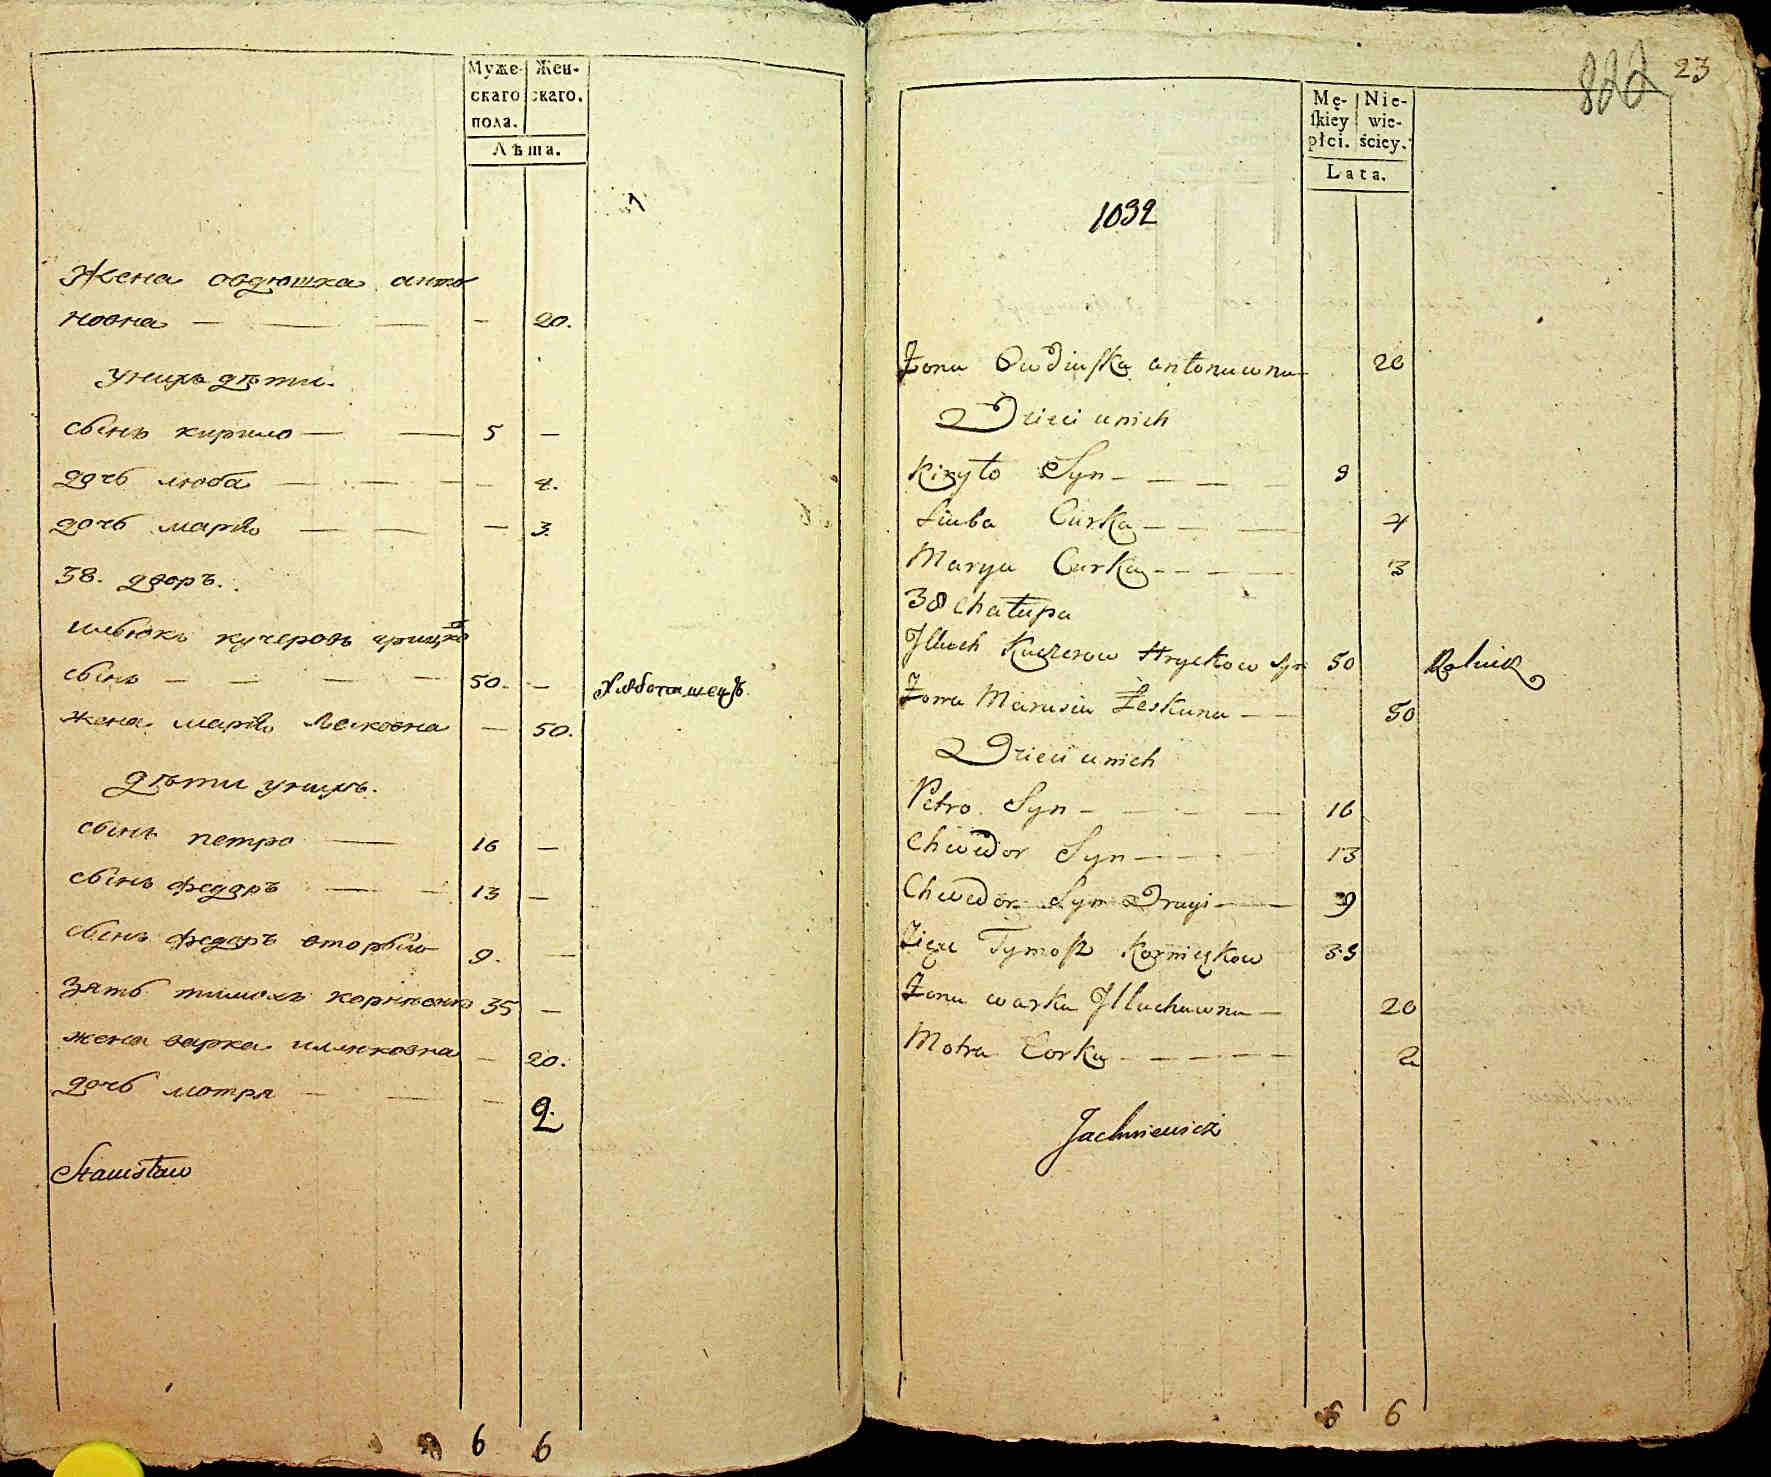 Муже- Жен-
скаго скаго.
пола.
Лѣта.
Жена овдюшка анто
новна — — — — 20.
унихъ дѣти.
сынъ кирило — — 5 —
дочь люба — — — — 4.
дочь марія — — — 3.
38. дворъ.
ильюкъ кучеровъ грицко
сынъ — — — — 50. — Хлѣбопашецъ.
жена марія леиковна — 50.
дѣти унихъ.
сынъ петро — 16 —
сынъ федоръ — — 13 —
сынъ федоръ вторый 9. —
зять тимошъ 35 —
жена варка илюковна — 20.
дочь мотря — — — 2.
Stanisław
6 6
822 23
Mę- Nie-
ſkiey wie-
płci. ściey.
Lata.
1032
Żona Owdiuſka antonuwna 20
Dzieci unich
Kiryło Syn — — — — 9
Liuba Curka — — — 4
Marya Curka — — — — 3
38 Chałupa
Illuch Kuczerow Hryckow Syn 50 Rolnik
Żona Marusia Leskuna — — 50
Dzieci unich
Petro Syn — — — — 16
Chwedor Syn — — — 13
Chwedor Syn Drugi — — 9
Zięć Tymoſz 35
Żona warka Illuchuwna — 20
Motra Corka — — — — — 2
Jachniewicz
6 6